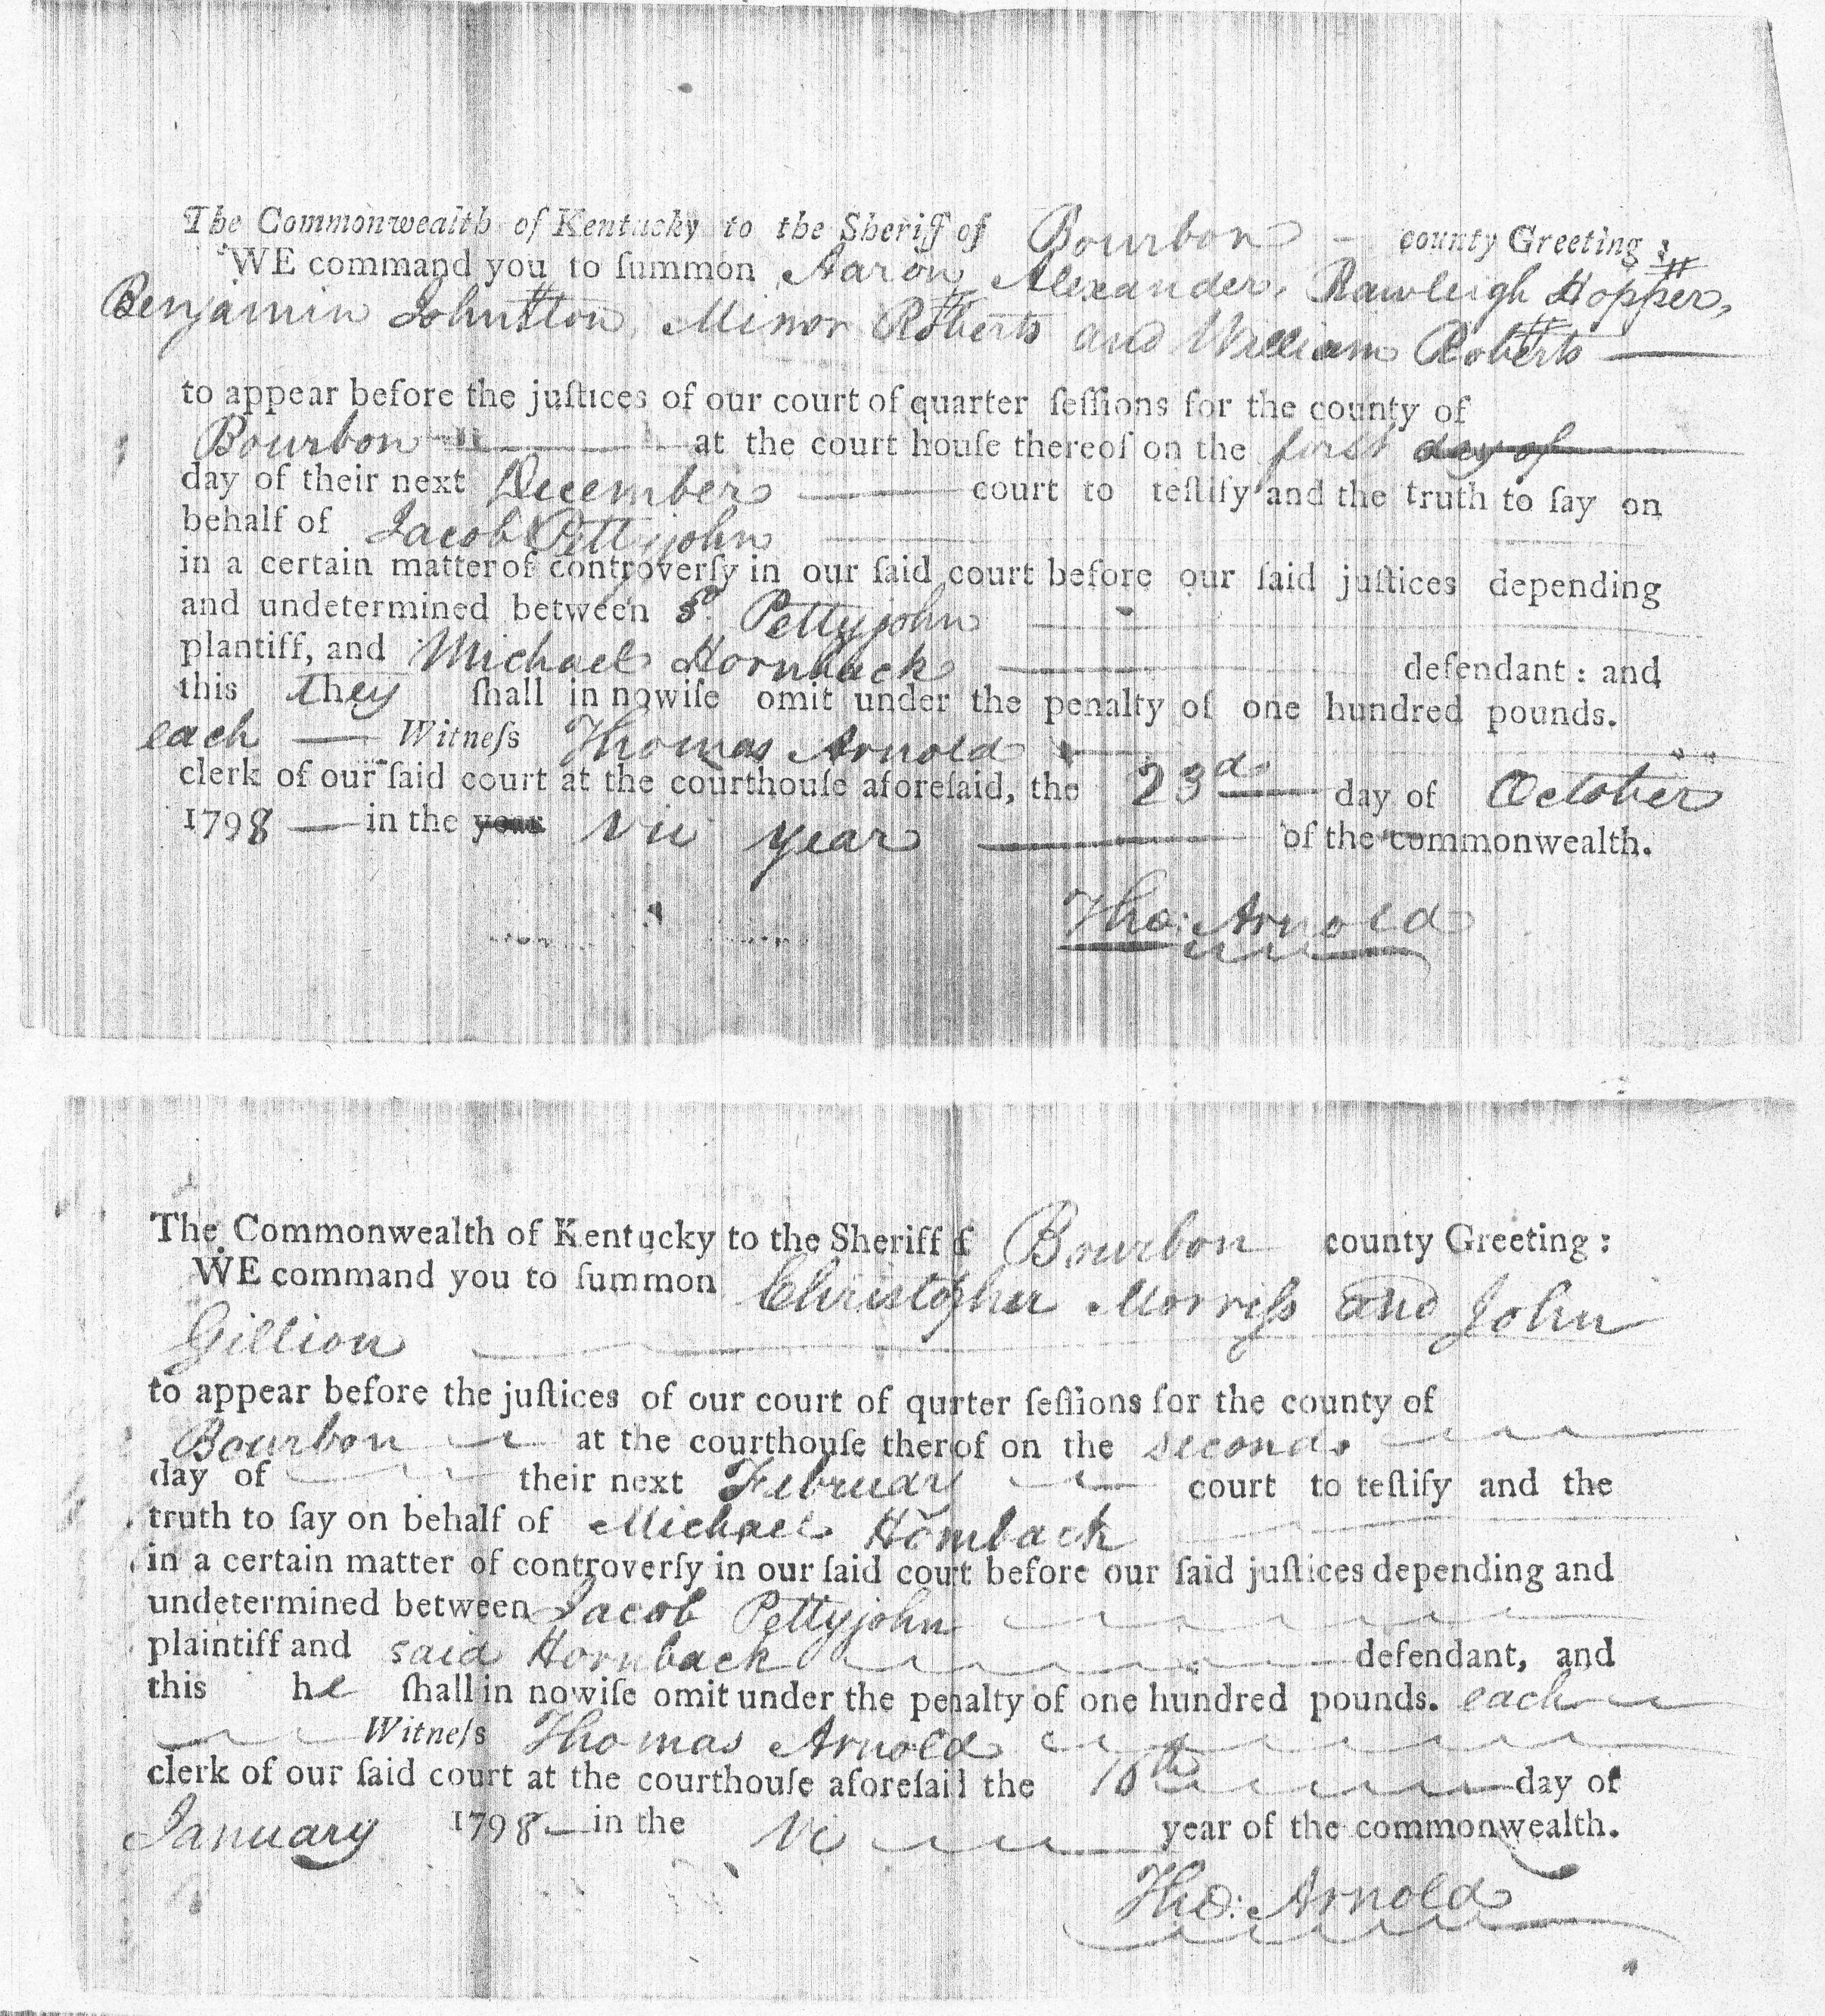 The Commonwealth of Kentucky to the Sheriff of Bourbon county Greeting:
WE command you to ſummon Aaron Alexander, Rawleigh Hopper,
Benjamin Johnston, Minor Roberts and William Roberts
to appear before the juſtices of our court of quarter ſeſſions for the county of
Bourbon at the court houſe thereof on the first day of
day of their next December court to teſtify and the truth to ſay on
behalf of Jacob Pettyjohn
in a certain matter of controverſy in our ſaid court before our ſaid juſtices depending
and undetermined between sd. Pettyjohn
plantiff, and Michael Hornback defendant: and
this they ſhall in nowiſe omit under the penalty of one hundred pounds.
each Witneſs Thomas Arnold
clerk of our ſaid court at the courthouſe aforeſaid, the 23d day of October
1798 in the year vii year of the commonwealth.
Tho: Arnold
The Commonwealth of Kentucky to the Sheriff of Bourbon county Greeting:
WE command you to ſummon Christopher Morriſs and John
Gillion
to appear before the juſtices of our court of qurter ſeſſions for the county of
Bourbon at the courthouſe therof on the second
day of their next February court to teſtify and the
truth to ſay on behalf of Michael Hornback
in a certain matter of controverſy in our ſaid court before our ſaid juſtices depending and
undetermined between Jacob Pettyjohn
plaintiff and said Hornback defendant, and
this he ſhall in nowiſe omit under the penalty of one hundred pounds. each
Witneſs Thomas Arnold
clerk of our ſaid court at the courthouſe aforeſaid the day of
January 1798 in the vi year of the commonwealth.
Tho: Arnold